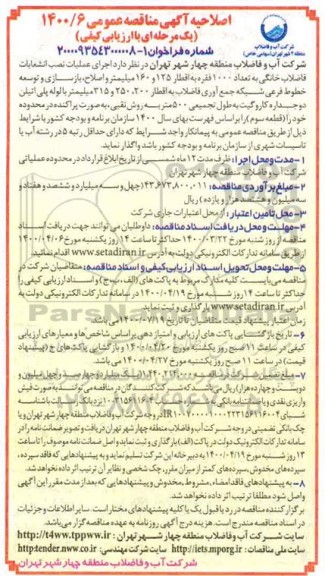 اصلاحیه آگهی مناقصه عمومی ۱۴۰۰/۶
(یک مرحله ای با ارزیابی کیفی)
شماره فراخوان ۱-۲۰۰۰۰۹۳۵۴۳۰۰۰۰۰۸
شرکت آب و فاضلاب
منطقه ۴ شهر تهران (سهامی خاص)
شرکت آب و فاضلاب منطقه چهار شهر تهران در نظر دارد اجرای عملیات نصب انشعابات
فاضلاب خانگی به تعداد ۱۰۰۰ فقره به اقطار ۱۲۵ و ۱۶۰ میلیمتر و اصلاح، بازسازی و توسعه
خطوط فرعی شبکه جمع آوری فاضلاب به اقطار ۲۰۰، ۲۵۰ و ۳۱۵ میلیمتر با لوله پلی اتیلن
دو جداره کاروگیت به طول تجمیعی ۵۰۰ متر به روش نقبی، به صورت پراکنده در محدوده
خود را (قطعه سوم)، بر اساس فهرست بهای سال ۱۴۰۰ سازمان برنامه و بودجه کشور با شرایط
ذیل از طریق مناقصه عمومی به پیمانکار واجد شرایط که دارای حداقل رتبه ۵ در رشته آب یا
تاسیسات شهری از سازمان برنامه و بودجه کشور باشد واگذار نماید.
۱- مدت و محل اجرا: ظرف مدت ۱۲ ماه شمسی از تاریخ ابلاغ قرارداد در محدوده عملیاتی
شرکت آب و فاضلاب منطقه چهار شهر تهران
۲- مبلغ برآوردی مناقصه: ۴۳.۶۷۳.۸۰۰.۰۱۱ (چهل و سه میلیارد و ششصد و هفتاد و
سه میلیون و هشتصد هزار و یازده) ریال
۳- محل تامین اعتبار: از محل اعتبارات جاری شرکت
۴- مهلت و محل دریافت اسناد مناقصه: داوطلبان می توانند جهت دریافت اسناد
مناقصه از روز شنبه مورخ ۱۴۰۰/۰۳/۲۲ حداکثر تا ساعت ۱۴ روز یکشنبه مورخ ۱۴۰۰/۰۴/۰۶
از طریق سامانه تدارکات الکترونیکی دولت به آدرس www.setadiran.ir اقدام نمایند.
۵- مهلت و محل تحویل اسناد ارزیابی کیفی و اسناد مناقصه: متقاضیان شرکت در
مناقصه می بایست کلیه مدارک مربوط به پاکت های (الف، ب، ج) و اسناد ارزیابی کیفی را
حداکثر تا ساعت ۱۴ روز شنبه مورخ ۱۴۰۰/۰۴/۱۹ در سامانه تدارکات الکترونیکی دولت به
آدرس www.setadiran.ir بارگذاری و ثبت نمایند.
زمان اعتبار پیشنهاد قیمت متقاضیان تا تاریخ
۶- تاریخ بازگشایی پاکت های ارزیابی و امتیازدهی بر اساس شاخص ها و معیارهای ارزیابی
کیفی در ساعت ۱۱ صبح روز یکشنبه مورخ ۱۴۰۰/۰۴/۲۰ و بازگشایی پاکت های ج (پیشنهاد
قیمت) در ساعت ۱۱ صبح روز یکشنبه مورخ ۱۴۰۰/۰۴/۲۷ می باشد.
۸- به پیشنهادهای فاقد امضاء، مشروط، مخدوش و پیشنهادهایی که بعد از مدت مقرر این آگهی
واصل شود مطلقا ترتیب اثر داده نخواهد شد.
برگزار کننده مناقصه در رد یا قبول یک یا کلیه پیشنهادهای مختار است. سایر اطلاعات و جزئیات
در اسناد مناقصه مندرج است. هزینه درج آگهی روزنامه به عهده مناقصه گزار می باشد.
سایت شرکت آب و فاضلاب منطقه چهار شهر تهران: http://t4ww.tppww.ir
سایت ملی مناقصات: http://iets.mporg.ir سایت شرکت مهندسی: http://tender.nww.co.ir
شرکت آب و فاضلاب منطقه چهار شهر تهران